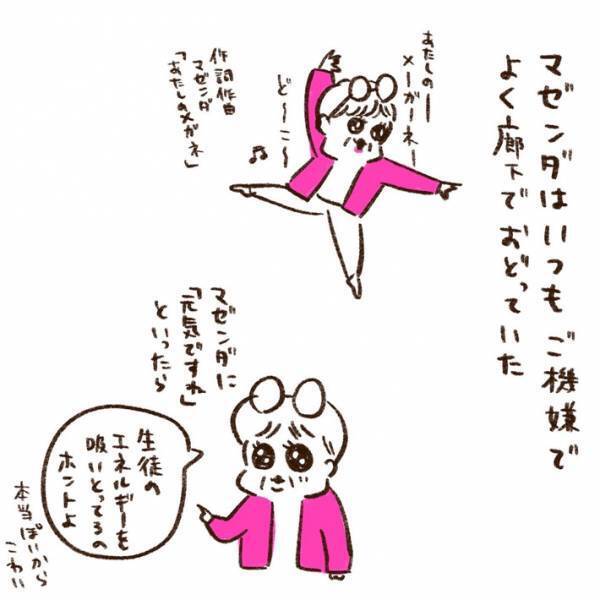 マゼンダはいつもご機嫌で
よく廊下でおどっていた
あたしのー
メーガーネー
ど〜こ〜
作詞作曲
マゼンダ
「あたしのメガネ」
マゼンダに
「元気ですね」
といったら
生徒の
エネルギーを
吸いとってるの
ホントよ
本当ぽいから
こわい